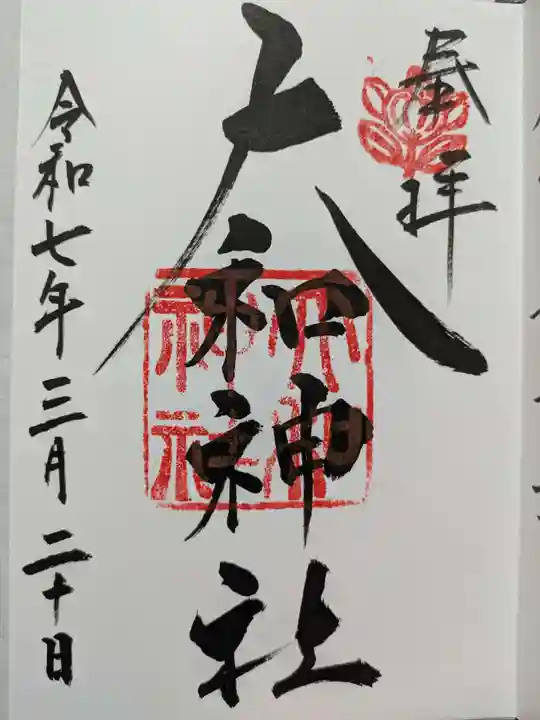 奉拝
大和神社
令和七年三月二十日
大和
神社